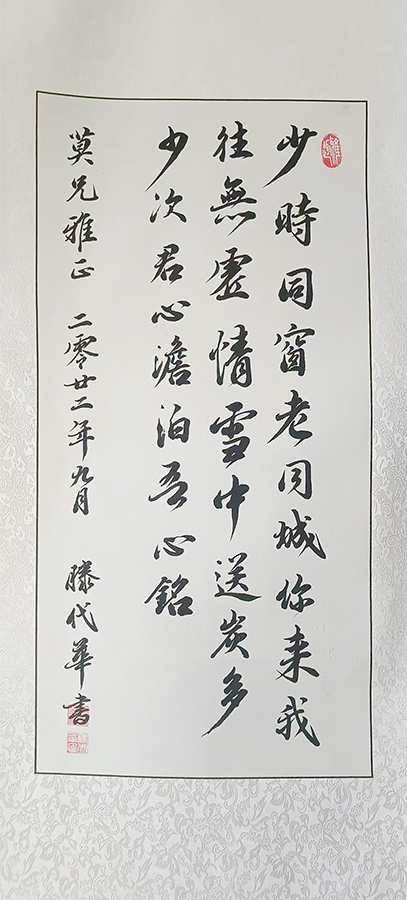 少時同窗老同城你來我
往無虛情雪中送炭多
少次君心澹泊吾心銘
莫兄雅正 二零廿二年九月 滕代華書